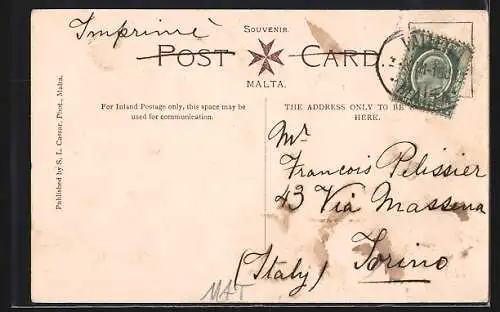 Imprimé
Souvenir.
POST CARD
MALTA.
VALLETTA
MALTA
Published by S. L. Cassar, Phot., Malta.
For Inland Postage only, this space may be
used for communication.
THE ADDRESS ONLY TO BE
HERE.
Mr
Francois Pelissier
43 Via Massena
Torino
(Italy)
MAT